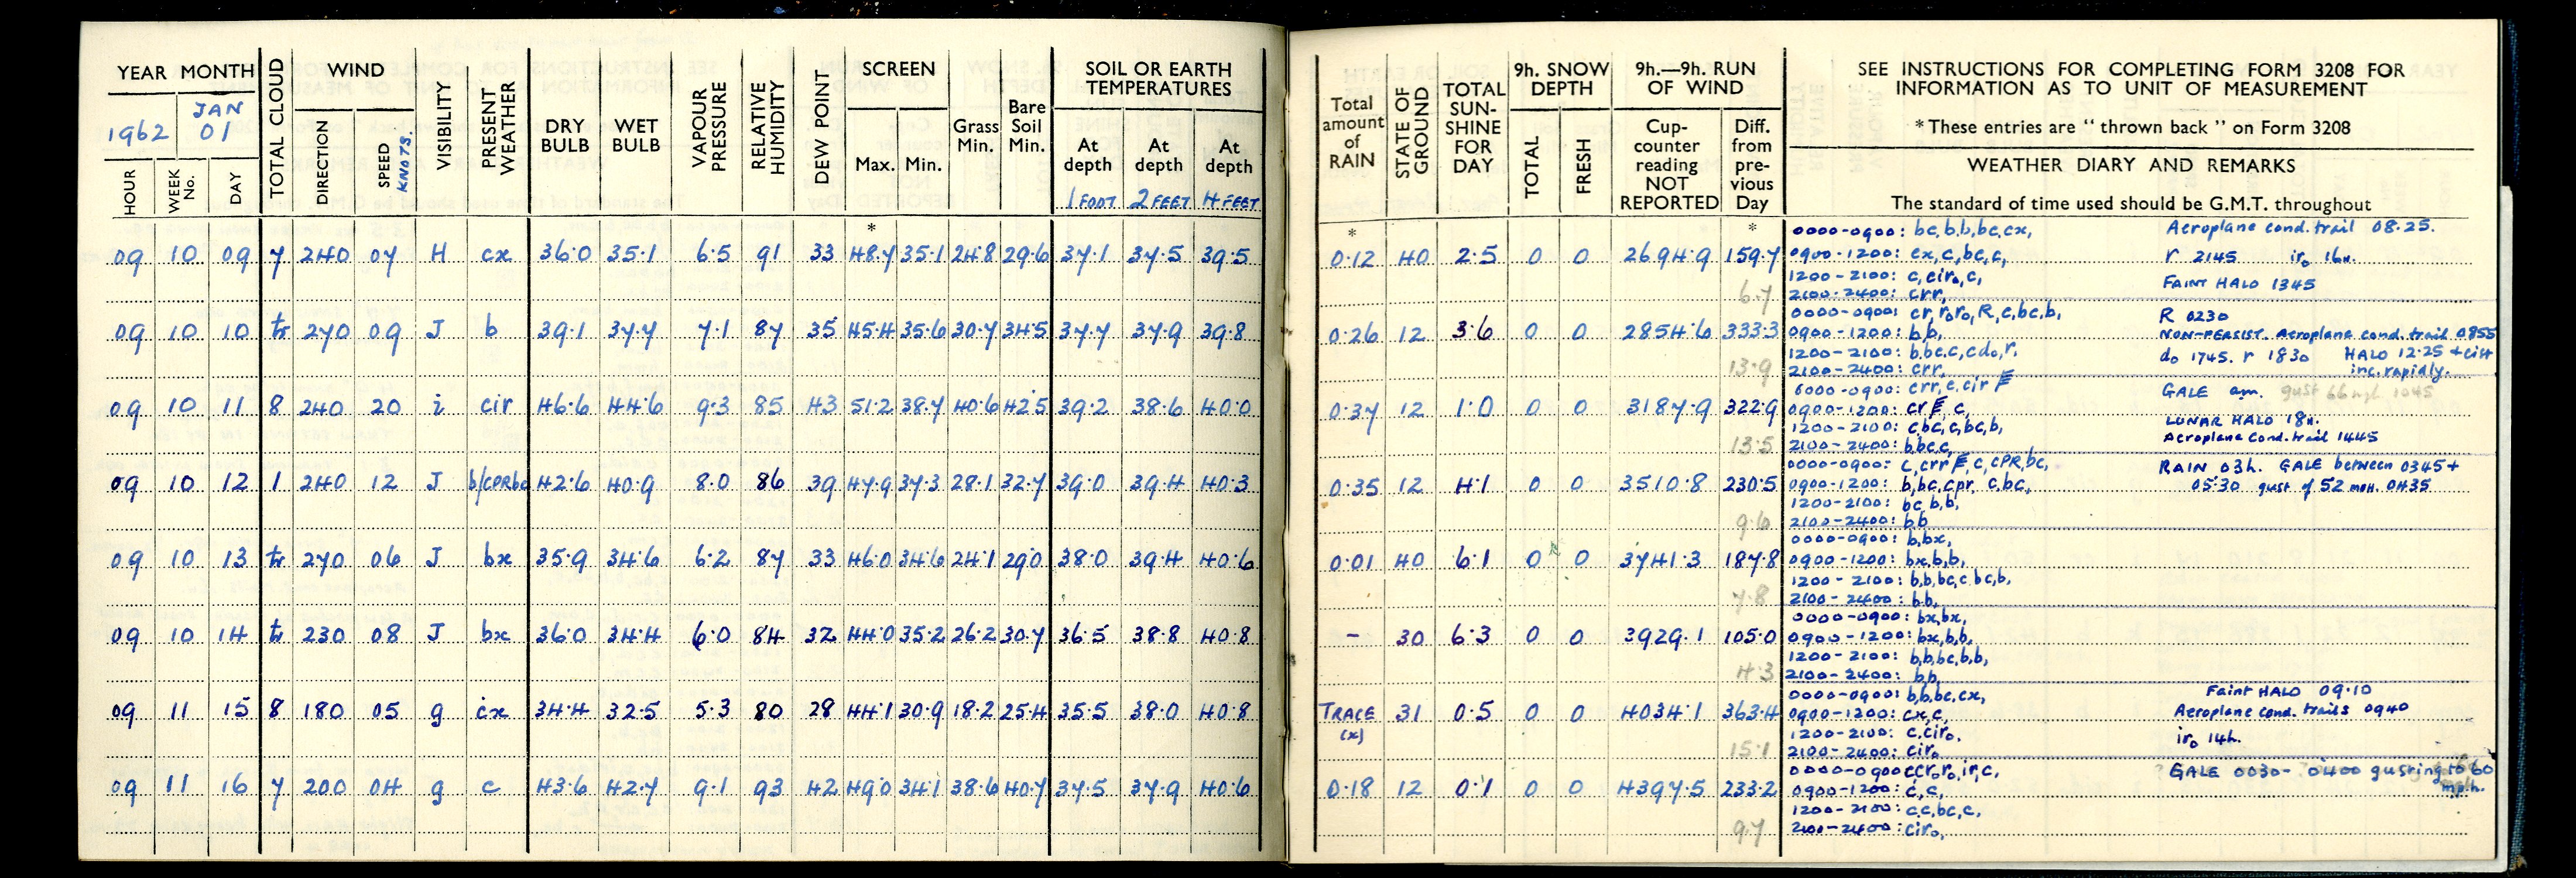 YEAR MONTH
1962 JAN 01
HOUR WEEK No. DAY TOTAL CLOUD WIND DIRECTION SPEED KNOTS. VISIBILITY PRESENT WEATHER DRY BULB WET BULB VAPOUR PRESSURE RELATIVE HUMIDITY DEW POINT SCREEN Max. Min. Grass Min. Bare Soil Min. SOIL OR EARTH TEMPERATURES At depth 1 FOOT At depth 2 FEET At depth 4 FEET
*
09 10 09 7 240 07 H cx 36.0 35.1 6.5 91 33 48.7 35.1 24.8 29.6 37.1 37.5 39.5
09 10 10 tr 270 09 J b 39.1 37.7 7.1 87 35 45.4 35.6 30.7 34.5 37.7 37.9 39.8
09 10 11 8 240 20 i cir 46.6 44.6 9.3 85 43 51.2 38.7 40.6 42.5 39.2 38.6 40.0
09 10 12 1 240 12 J b/cPRbc 42.6 40.9 8.0 86 39 47.9 37.3 28.1 32.7 39.0 39.4 40.3
09 10 13 tr 270 06 J bx 35.9 34.6 6.2 87 33 46.0 34.6 24.1 29.0 38.0 39.4 40.6
09 10 14 tr 230 08 J bx 36.0 34.4 6.0 84 32 44.0 35.2 26.2 30.7 36.5 38.8 40.8
09 11 15 8 180 05 g cx 34.4 32.5 5.3 80 28 44.1 30.9 18.2 25.4 35.5 38.0 40.8
09 11 16 7 200 04 g c 43.6 42.7 9.1 93 42 49.0 34.1 38.6 40.7 37.5 37.9 40.6
Total amount of RAIN STATE OF GROUND TOTAL SUN-SHINE FOR DAY 9h. SNOW DEPTH TOTAL FRESH 9h.—9h. RUN OF WIND Cup-counter reading NOT REPORTED Diff. from pre-vious Day
SEE INSTRUCTIONS FOR COMPLETING FORM 3208 FOR
INFORMATION AS TO UNIT OF MEASUREMENT
* These entries are "thrown back" on Form 3208
WEATHER DIARY AND REMARKS
The standard of time used should be G.M.T. throughout
* *
0000-0900: bc,b,b,bc,cx, Aeroplane cond. trail 08.25.
0.12 40 2.5 0 0 2694.9 159.7 0900-1200: cx,c,bc,c, r 2145 ir₀ 16h.
1200-2100: c,cir₀,c, FAINT HALO 1345
6.7 2100-2400: crr,
0000-0900: cr,r₀r₀,R,c,bc,b, R 0230
0.26 12 3.6 0 0 2854.6 333.3 0900-1200: b,b, NON-PERSIST. Aeroplane cond. trail 0855
1200-2100: b,bc,c,cd₀,r, d₀ 1745. r 1830 HALO 12.25 +
13.9 2100-2400: crr, inc. rapidly.
0000-0900: crr,c,cir GALE am. gust 66 mph 1045
0.37 12 1.0 0 0 3187.9 322.9 0900-1200: cr c,
1200-2100: c,bc,c,bc,b, LUNAR HALO 18h.
13.5 2100-2400: b,bc,c, Aeroplane Cond. trail 1445
0000-0900: c,crr c,cPR,bc, RAIN 03h. GALE between 0345 +
0.35 12 4.1 0 0 3510.8 230.5 0900-1200: b,bc,cpr, c,bc, 05.30 gust of 52 mph. 0435
1200-2100: bc,b,b,
9.6 2100-2400: b,b
0000-0900: b,bx,
0.01 40 6.1 0 0 3741.3 187.8 0900-1200: bx,b,b,
1200-2100: b,b,bc,c,bc,b,
7.8 2100-2400: b,b,
0000-0900: bx,bx,
- 30 6.3 0 0 3929.1 105.0 0900-1200: bx,b,b,
1200-2100: b,b,bc,b,b,
4.3 2100-2400: b,b,
0000-0900: b,b,bc,cx, Faint HALO 09.10
TRACE (x) 31 0.5 0 0 4034.1 363.4 0900-1200: cx,c, Aeroplane cond. trails 0940
1200-2100: c,cir₀, ir₀ 14h.
15.1 2100-2400: cir₀
0000-0900 ccr,r₀,ir,c, GALE 0030-0400 gusting to 60 mph.
0.18 12 0.1 0 0 4397.5 233.2 0900-1200: c,c,
1200-2100: c,c,bc,c,
9.7 2100-2400: cir₀,